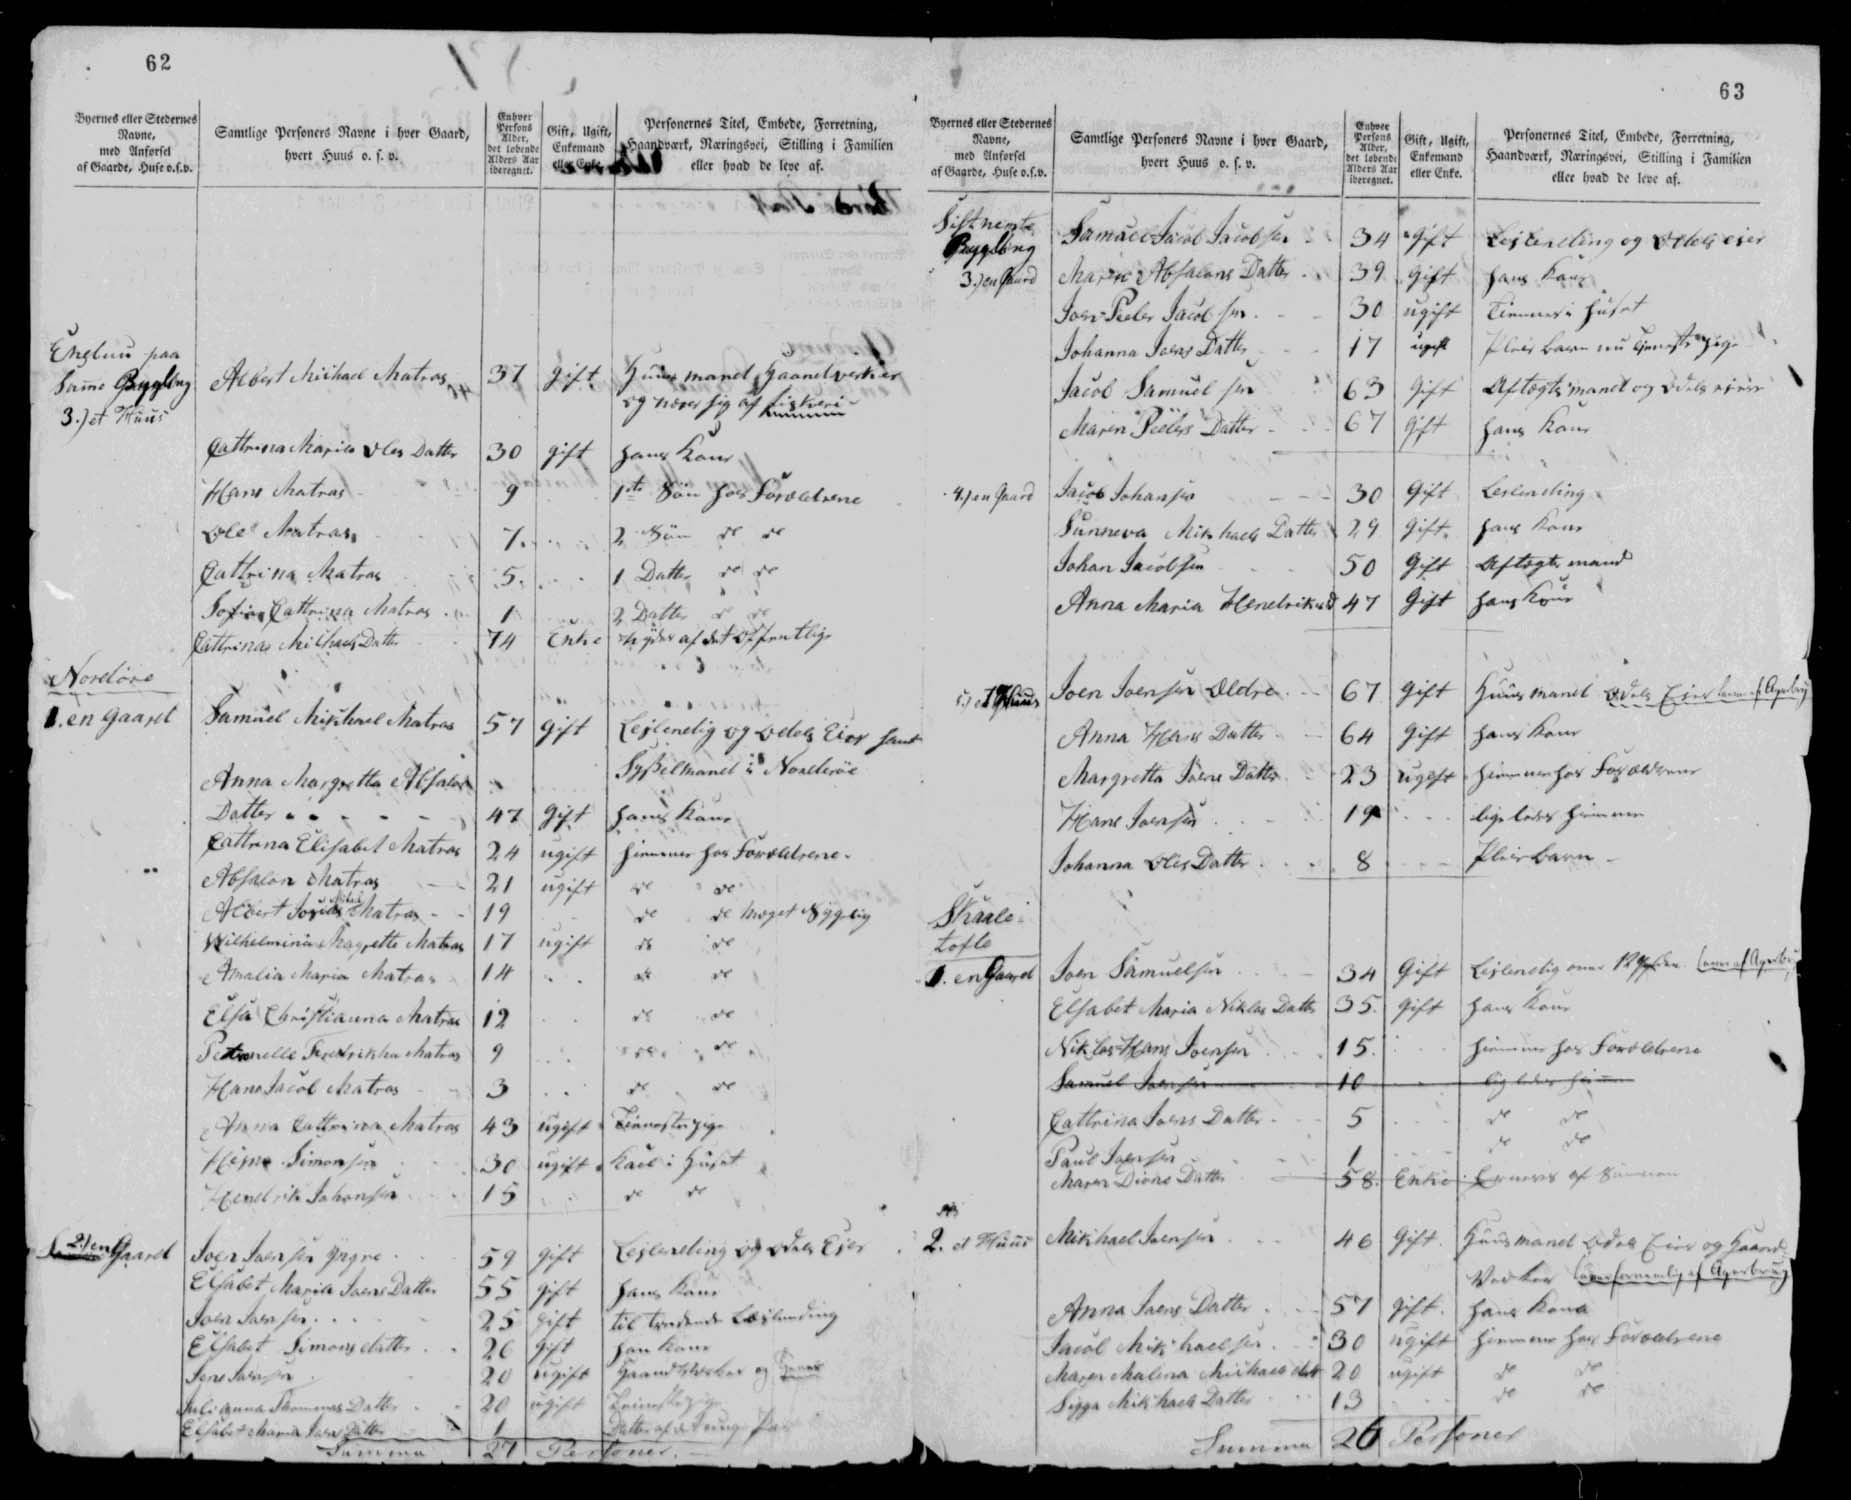 62
Byernes eller Stedernes Navne, med Anførsel af Gaarde, Huse o.s.v.
Samtlige Personers Navne i hver Gaard, hvert Huus o. s. v.
Enhver Persons Alder, det løbende Alders Aar iberegnet.
Gift, Ugift, Enkemand eller Enke.
Personernes Titel, Embede, Forretning, Haandværk, Næringsvei, Stilling i Familien eller hvad de leve af.
paa
Samme Bygding Albert Michael Matras 37 gift Huusmand Haandverker
3.) et Huus og nærer sig af fiskeri
Cattrina Maria Oles Datter 30 gift hans Kone
Hans Matras 9 1te Søn hos Forældrene
Ole Matras 7 2 Søn do do
Cattrina Matras 5 1 Datter do do
Sofia Cattrina Matras 1 2 Datter do do
Cattrina Michaels Datter 74 Enke nyder af det Offentlige
Nordöre
1. en Gaard Samuel Mikkael Matras 57 gift Leilendig og Odels Eier samt
Sysselmand i Norderöe
Anna Margretha Absalons
Datter 47 gift hans Kone
Cattrina Elisabet Matras 24 ugift hiemme hos Forældrene
Absalon Matras 21 ugift do do
Albert Matras 19 do do meget Sygelig
Wilhelmina Magrette Matras 17 ugift do do
Amalia Maria Matras 14 do do
Elsa Christianna Matras 12 do do
Petronelle Fredrikka Matras 9 do do
Hans Jacob Matras 3 do do
Anna Cattrina Matras 43 ugift Tienestepige
Simonsen 30 ugift Karl i Huset
Hendrik Johansen 15 do do
2) en Gaard Joen Joensen Yngre 59 gift Leilending og Odels Eier
Elsabet Maria Joens Datter 55 gift hans Kone
Joen Joensen 25 gift til trædende Leilending
Elsabet Simons datter 26 gift han Kone
Jens Joensen 20 ugift Haandverker og
Julianna Thommas Datter 20 ugift Tienestepige
Elsabet Maria Joens Datter 1 Datter af det unge Par
Summa 27 Personer.
63
Byernes eller Stedernes Navne, med Anførsel af Gaarde, Huse o.s.v.
Samtlige Personers Navne i hver Gaard, hvert Huus o. s. v.
Enhver Persons Alder, det løbende Alders Aar iberegnet.
Gift, Ugift, Enkemand eller Enke.
Personernes Titel, Embede, Forretning, Haandværk, Næringsvei, Stilling i Familien eller hvad de leve af.
Sistnemte Samuel Jacob Jacobsen 34 gift Leilending og Odels eier
Bygding
3.) en Gaard Maria Absalons Datter 39 gift hans Kone
Joen Peeter Jacobsen 30 ugift Tienner i Huset
Johanna Joens Datter 17 ugift Pleie barn nu tienestepige
Jacob Samuelsen 63 Gift Aftægts mand og Odels eier
Maren Peeters Datter 67 Gift hans Kone
4.) en Gaard Jacob Johansen 30 Gift Leilending
Sunneva Mikkaels Datter 29 Gift hans Kone
Johan Jacobsen 50 Gift Aftægts mand
Anna Maria Hendriks D 47 Gift hans Kone
5.) et Huus Joen Joensen Ældre 67 gift Huusmand Odels Eier lever af Agerbrug
Anna Hans Datter 64 Gift hans Kone
Margretta Joens Datter 23 ugift hiemme hos Forældrene
Hans Joensen 19 ligeledes hiemme
Johanna Oles Datter 8 Pleiebarn
Skaale-
tofte
1. en Gaard Joen Samuelsen 34 Gift Leilendig over 12 Gylden lever af Agerbrug
Elsabet Maria Niklas Datter 35 gift hans Kone
Niklas Hans Joensen 15 hiemme hos Forældrene
Samuel Joensen 10 ligeledes hiemme
Cattrina Joens Datter 5 do do
Paul Joensen 1 do do
Maren Datter 58 Enke af Sønnen
2. et Huus Mikkael Joensen 46 Gift Huusmand Odels Eier og Haand-
Verker lever fornemlig af Agerbrug
Anna Joens Datter 57 gift hans Kone
Jacob Mikkaelsen 30 ugift hiemme hos Forældrene
Maren Malena Mikkaels datt 20 ugift do do
Sigga Mikkaels Datter 13 do do
Summa 26 Personer